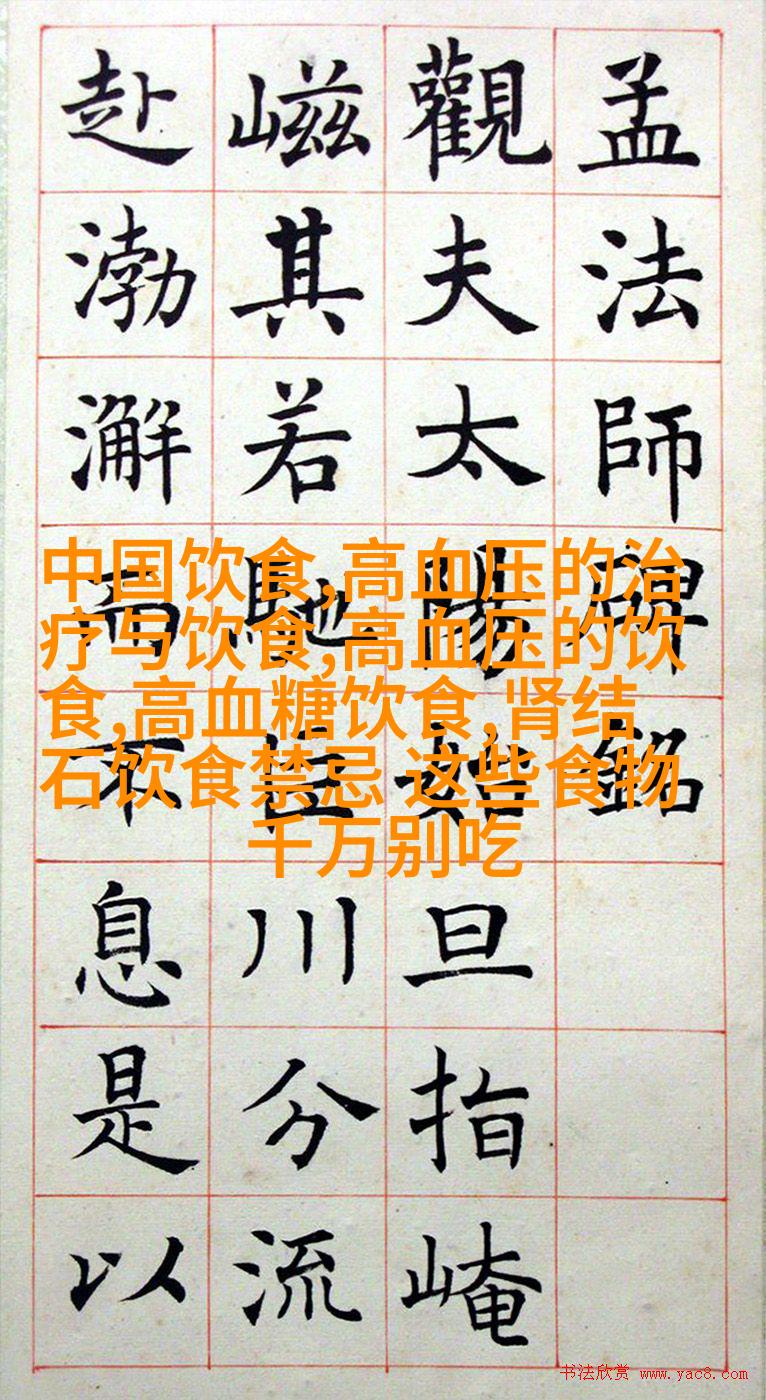 孟法師碑銘
觀夫太陽始旦指崦
嵫其若馳巨川分流
赴渤澥而不息是以
中国饮食,高血压的治
疗与饮食,高血压的饮
食,高血糖饮食,肾结
石饮食禁忌 这些食物
千万别吃
书法欣赏 www.yac8.com